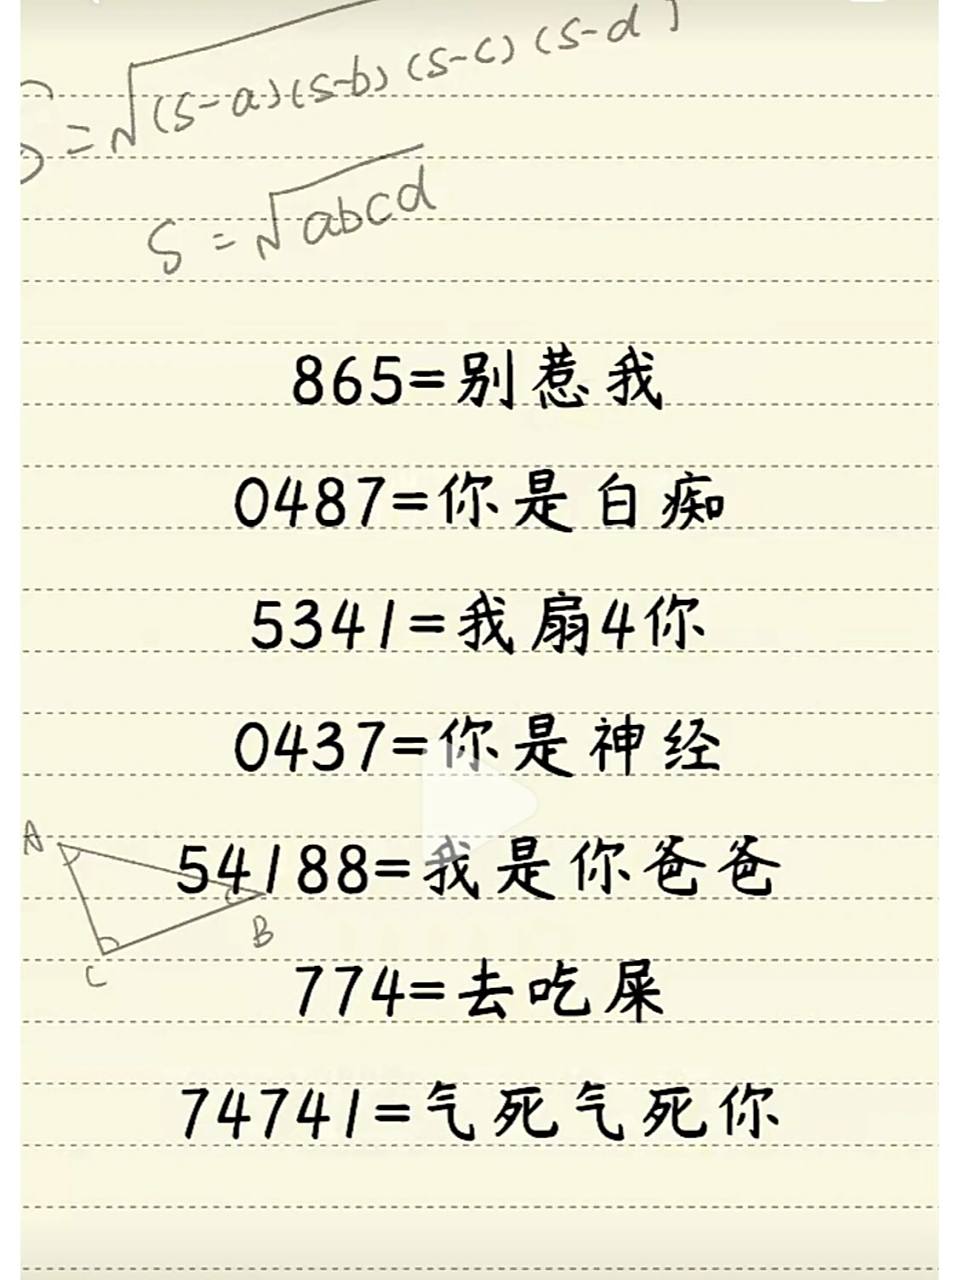 =√(s-a)(s-b)(s-c)(s-d)
S=√abcd
865=别惹我
0487=你是白痴
5341=我扇4你
0437=你是神经
A
54188=我是你爸爸
B
C
774=去吃屎
74741=气死气死你